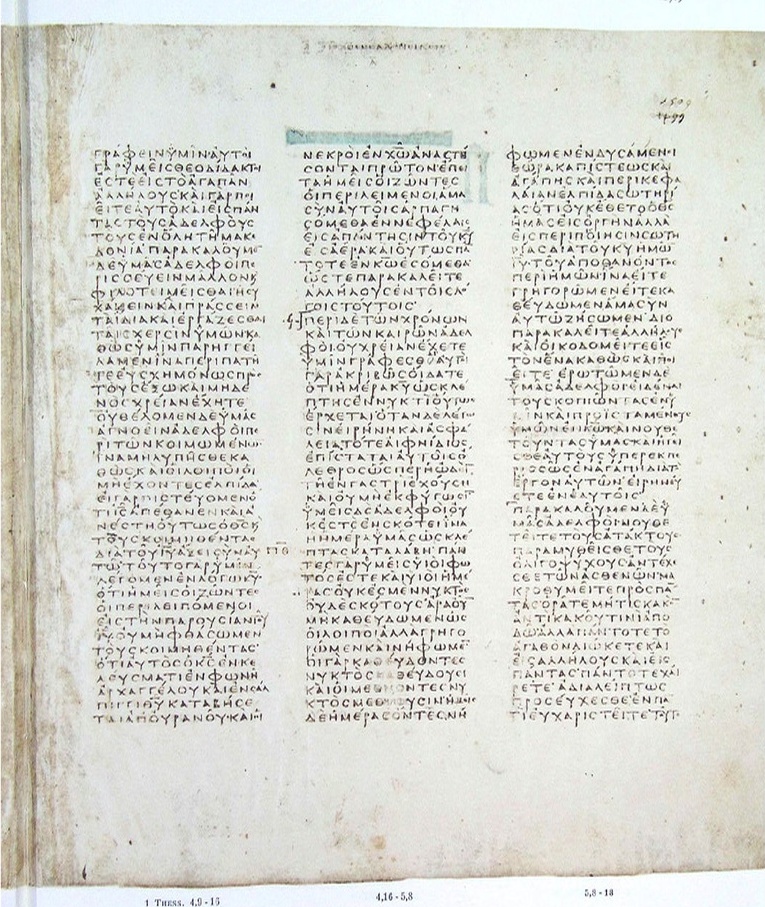 ΓΡΑΦΕΙΝΥΜΙΝΑΥΤΟΙ
ΓΑΡΥΜΕΙϹΘΕΟΔΙΔΑΚΤΟΙ
ΕϹΤΕΕΙϹΤΟΑΓΑΠΑΝ
ΑΛΛΗΛΟΥϹΚΑΙΓΑΡΠΟΙ
ΕΙΤΕΑΥΤΟΚΑΙΕΙϹΠΑΝ
ΤΑϹΤΟΥϹΑΔΕΛΦΟΥϹ
ΤΟΥϹΕΝΟΛΗΤΗΜΑΚΕ
ΔΟΝΙΑΠΑΡΑΚΑΛΟΥΜΕ̅
ΔΕΥΜΑϹΑΔΕΛΦΟΙΠΕ
ΡΙϹϹΕΥΕΙΝΜΑΛΛΟΝΚΑΙ
ΦΙΛΟΤΕΙΜΕΙϹΘΑΙΗϹΥ
ΧΑΖΕΙΝΚΑΙΠΡΑϹϹΕΙΝ
ΤΑΙΔΙΑΚΑΙΕΡΓΑΖΕϹΘΑΙ
ΤΑΙϹΧΕΡϹΙΝΥΜΩΝΚΑ
ΘΩϹΥΜΙΝΠΑΡΗΓΓΕΙ
ΛΑΜΕΝΙΝΑΠΕΡΙΠΑΤΗ
ΤΕΕΥϹΧΗΜΟΝΩϹΠΡΟϹ
ΤΟΥϹΕΞΩΚΑΙΜΗΔΕ
ΝΟϹΧΡΕΙΑΝΕΧΗΤΕ
ΟΥΘΕΛΟΜΕΝΔΕΥΜΑϹ
ΑΓΝΟΕΙΝΑΔΕΛΦΟΙΠΕ
ΡΙΤΩΝΚΟΙΜΩΜΕΝΩΝ
ΙΝΑΜΗΛΥΠΗϹΘΕΚΑ
ΘΩϹΚΑΙΟΙΛΟΙΠΟΙΟΙ
ΜΗΕΧΟΝΤΕϹΕΛΠΙΔΑ
ΕΙΓΑΡΠΙϹΤΕΥΟΜΕΝΟ
ΤΙΙ̅Ϲ̅ΑΠΕΘΑΝΕΝΚΑΙΑ
ΝΕϹΤΗΟΥΤΩϹΟΘ̅Ϲ̅Κ
ΤΟΥϹΚΟΙΜΗΘΕΝΤΑϹ
ΔΙΑΤΟΥΙ̅Υ̅ΑΞΕΙϹΥΝΑΥ
ΤΩΤΟΥΤΟΓΑΡΥΜΙΝ
ΛΕΓΟΜΕΝΕΝΛΟΓΩΚ̅Υ̅
ΟΤΙΗΜΕΙϹΟΙΖΩΝΤΕϹ
ΟΙΠΕΡΙΛΕΙΠΟΜΕΝΟΙ
ΕΙϹΤΗΝΠΑΡΟΥϹΙΑΝΤΟΥ
Ι̅Υ̅ΟΥΜΗΦΘΑϹΩΜΕΝ
ΤΟΥϹΚΟΙΜΗΘΕΝΤΑϹ
ΟΤΙΑΥΤΟϹΟΚ̅Ϲ̅ΕΝΚΕ
ΛΕΥϹΜΑΤΙΕΝΦΩΝΗ
ΑΡΧΑΓΓΕΛΟΥΚΑΙΕΝϹΑΛ
ΠΙΓΓΙΘ̅Υ̅ΚΑΤΑΒΗϹΕ
ΤΑΙΑΠΟΥΡΑΝΟΥΚΑΙΟΙ
ΝΕΚΡΟΙΕΝΧ̅Ω̅ΑΝΑϹΤΗ
ϹΟΝΤΑΙΠΡΩΤΟΝΕΠΕΙ
ΤΑΗΜΕΙϹΟΙΖΩΝΤΕϹ
ΟΙΠΕΡΙΛΕΙΠΟΜΕΝΟΙΑΜΑ
ϹΥΝΑΥΤΟΙϹΑΡΠΑΓΗ
ϹΟΜΕΘΑΕΝΝΕΦΕΛΑΙϹ
ΕΙϹΑΠΑΝΤΗϹΙΝΤΟΥΚ̅Υ̅
ΕΙϹΑΕΡΑΚΑΙΟΥΤΩϹΠΑ̅
ΤΟΤΕΕΝΚ̅Ω̅ΕϹΟΜΕΘΑ
ΩϹΤΕΠΑΡΑΚΑΛΕΙΤΕ
ΑΛΛΗΛΟΥϹΕΝΤΟΙϹΛΟ
ΓΟΙϹΤΟΥΤΟΙϹ
ΠΕΡΙΔΕΤΩΝΧΡΟΝΩΝ
ΚΑΙΤΩΝΚΑΙΡΩΝΑΔΕΛ
ΦΟΙΟΥΧΡΕΙΑΝΕΧΕΤΕ
ΥΜΙΝΓΡΑΦΕϹΘΑΙΑΥΤΟΙ
ΓΑΡΑΚΡΙΒΩϹΟΙΔΑΤΕ
ΟΤΙΗΜΕΡΑΚ̅Υ̅ΩϹΚΛΕ
ΠΤΗϹΕΝΝΥΚΤΙΟΥΤΩϹ
ΕΡΧΕΤΑΙΟΤΑΝΔΕΛΕΓΩ
ϹΙΝΕΙΡΗΝΗΚΑΙΑϹΦΑ
ΛΕΙΑΤΟΤΕΑΙΦΝΙΔΙΟϹ
ΕΠΙϹΤΑΤΑΙΑΥΤΟΙϹΟ
ΛΕΘΡΟϹΩϹΠΕΡΗΩΔΕΙ̅
ΤΗΕΝΓΑϹΤΡΙΕΧΟΥϹΗ
ΚΑΙΟΥΜΗΕΚΦΥΓΩϹΙ̅
ΥΜΕΙϹΔΕΑΔΕΛΦΟΙΟΥ
ΚΕϹΤΕΕΝϹΚΟΤΕΙΙΝΑ
ΗΗΜΕΡΑΥΜΑϹΩϹΚΛΕ
ΠΤΑϹΚΑΤΑΛΑΒΗΠΑΝ
ΤΕϹΓΑΡΥΜΕΙϹΥΙΟΙΦΩ
ΤΟϹΕϹΤΕΚΑΙΥΙΟΙΗΜΕ
ΡΑϹΟΥΚΕϹΜΕΝΝΥΚΤΟϹ
ΟΥΔΕϹΚΟΤΟΥϹΑΡΑΟΥ̅
ΜΗΚΑΘΕΥΔΩΜΕΝΩϹ
ΟΙΛΟΙΠΟΙΑΛΛΑΓΡΗΓΟ
ΡΩΜΕΝΚΑΙΝΗΦΩΜΕ̅
ΟΙΓΑΡΚΑΘΕΥΔΟΝΤΕϹ
ΝΥΚΤΟϹΚΑΘΕΥΔΟΥϹΙ
ΚΑΙΟΙΜΕΘΥΟΝΤΕϹΝΥ
ΚΤΟϹΜΕΘΥΟΥϹΙΝΗΜΕΙϹ
ΔΕΗΜΕΡΑϹΟΝΤΕϹΝΗ
ΦΩΜΕΝΕΝΔΥϹΑΜΕΝΟΙ
ΘΩΡΑΚΑΠΙϹΤΕΩϹΚΑΙ
ΑΓΑΠΗϹΚΑΙΠΕΡΙΚΕΦΑ
ΛΑΙΑΝΕΛΠΙΔΑϹΩΤΗΡΙ
ΑϹΟΤΙΟΥΚΕΘΕΤΟΟΘ̅Ϲ̅
ΗΜΑϹΕΙϹΟΡΓΗΝΑΛΛΑ
ΕΙϹΠΕΡΙΠΟΙΗϹΙΝϹΩΤΗ
ΡΙΑϹΔΙΑΤΟΥΚ̅Υ̅ΗΜΩ̅
Ι̅Υ̅ΤΟΥΑΠΟΘΑΝΟΝΤΟϹ
ΠΕΡΙΗΜΩΝΙΝΑΕΙΤΕ
ΓΡΗΓΟΡΩΜΕΝΕΙΤΕΚΑ
ΘΕΥΔΩΜΕΝΑΜΑϹΥΝ
ΑΥΤΩΖΗϹΩΜΕΝΔΙΟ
ΠΑΡΑΚΑΛΕΙΤΕΑΛΛΗΛΟΥϹ
ΚΑΙΟΙΚΟΔΟΜΕΙΤΕΕΙϹ
ΤΟΝΕΝΑΚΑΘΩϹΚΑΙΠΟΙ
ΕΙΤΕΕΡΩΤΩΜΕΝΔΕ
ΥΜΑϹΑΔΕΛΦΟΙΕΙΔΕΝΑΙ
ΤΟΥϹΚΟΠΙΩΝΤΑϹΕΝΥ
ΜΙΝΚΑΙΠΡΟΙϹΤΑΜΕΝΟΥϹ
ΥΜΩΝΕΝΚ̅Ω̅ΚΑΙΝΟΥΘΕ
ΤΟΥΝΤΑϹΥΜΑϹΚΑΙΗΓΕΙ
ϹΘΕΑΥΤΟΥϹΥΠΕΡΕΚΠΕ
ΡΙϹϹΩϹΕΝΑΓΑΠΗΔΙΑΤΟ
ΕΡΓΟΝΑΥΤΩΝΕΙΡΗΝΕΥ
ΕΤΕΕΝΕΑΥΤΟΙϹ
ΠΑΡΑΚΑΛΟΥΜΕΝΔΕΥ
ΜΑϹΑΔΕΛΦΟΙΝΟΥΘΕ
ΤΕΙΤΕΤΟΥϹΑΤΑΚΤΟΥϹ
ΠΑΡΑΜΥΘΕΙϹΘΕΤΟΥϹ
ΟΛΙΓΟΨΥΧΟΥϹΑΝΤΕΧΕ
ϹΘΕΤΩΝΑϹΘΕΝΩΝΜΑ
ΚΡΟΘΥΜΕΙΤΕΠΡΟϹΠΑ̅
ΤΑϹΟΡΑΤΕΜΗΤΙϹΚΑΚΟ̅
ΑΝΤΙΚΑΚΟΥΤΙΝΙΑΠΟ
ΔΩΑΛΛΑΠΑΝΤΟΤΕΤΟ
ΑΓΑΘΟΝΔΙΩΚΕΤΕΚΑΙ
ΕΙϹΑΛΛΗΛΟΥϹΚΑΙΕΙϹ
ΠΑΝΤΑϹΠΑΝΤΟΤΕΧΑΙ
ΡΕΤΕΑΔΙΑΛΕΙΠΤΩϹ
ΠΡΟϹΕΥΧΕϹΘΕΕΝΠΑ̅
ΤΙΕΥΧΑΡΙϹΤΕΙΤΕΤΟΥΤΟ
1 THESS. 4,9-16
4,16-5,8
5,8-18